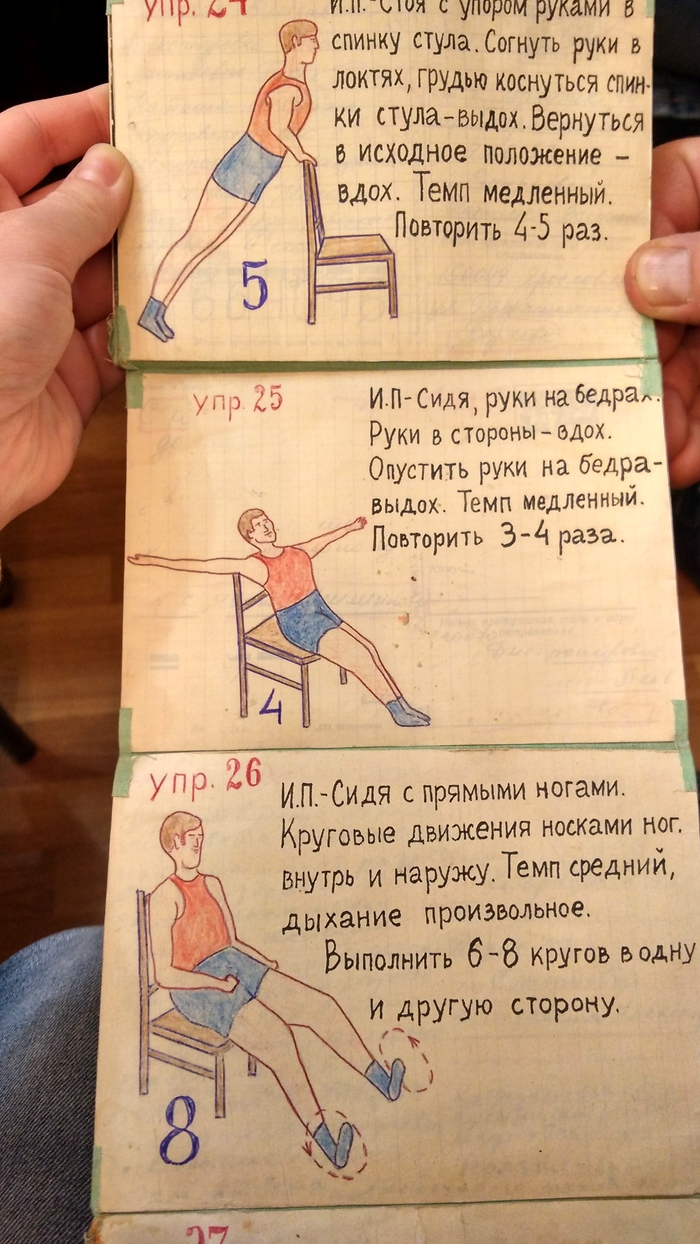 упр. 24
И.П.-Стоя с упором руками в
спинку стула. Согнуть руки в
локтях, грудью коснуться спин-
ки стула-выдох. Вернуться
в исходное положение –
вдох. Темп медленный.
Повторить 4-5 раз.
5
упр. 25
И.П-Сидя, руки на бедрах.
Руки в стороны-вдох.
Опустить руки на бедра-
выдох. Темп медленный.
Повторить 3-4 раза.
4
упр. 26
И.П.-Сидя с прямыми ногами.
Круговые движения носками ног.
внутрь и наружу. Темп средний,
дыхание произвольное.
Выполнить 6-8 кругов в одну
и другую сторону.
8
27